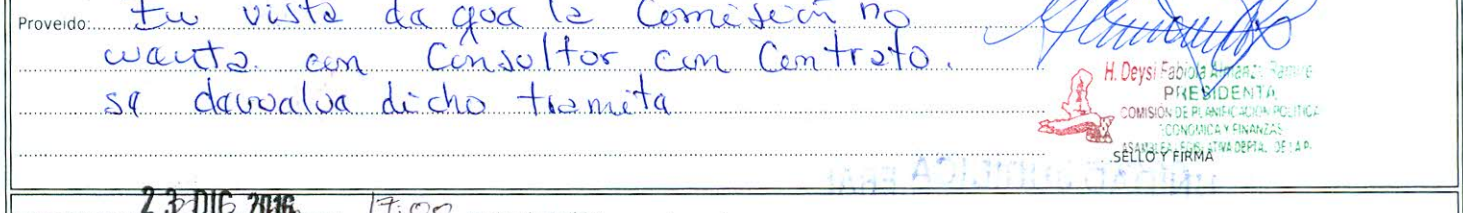 Proveido: En vista de que la Comisión no
cuenta con Consultor con Contrato.
se devuelve dicho tramite
H. Deysi Fabiola Almanza
PRESIDENTA
COMISIÓN DE PLANIFICACION POLITICA
ECONOMICA Y FINANZAS
ASAMBLEA LEGISLATIVA DEPTAL. DE LA P.
SELLO Y FIRMA
23 DIC 2016 17:00